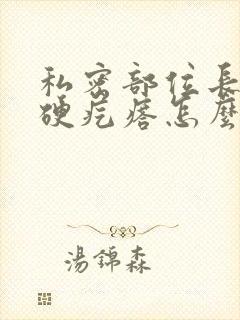 私密部位長
硬疙瘩怎麼
湯錦森